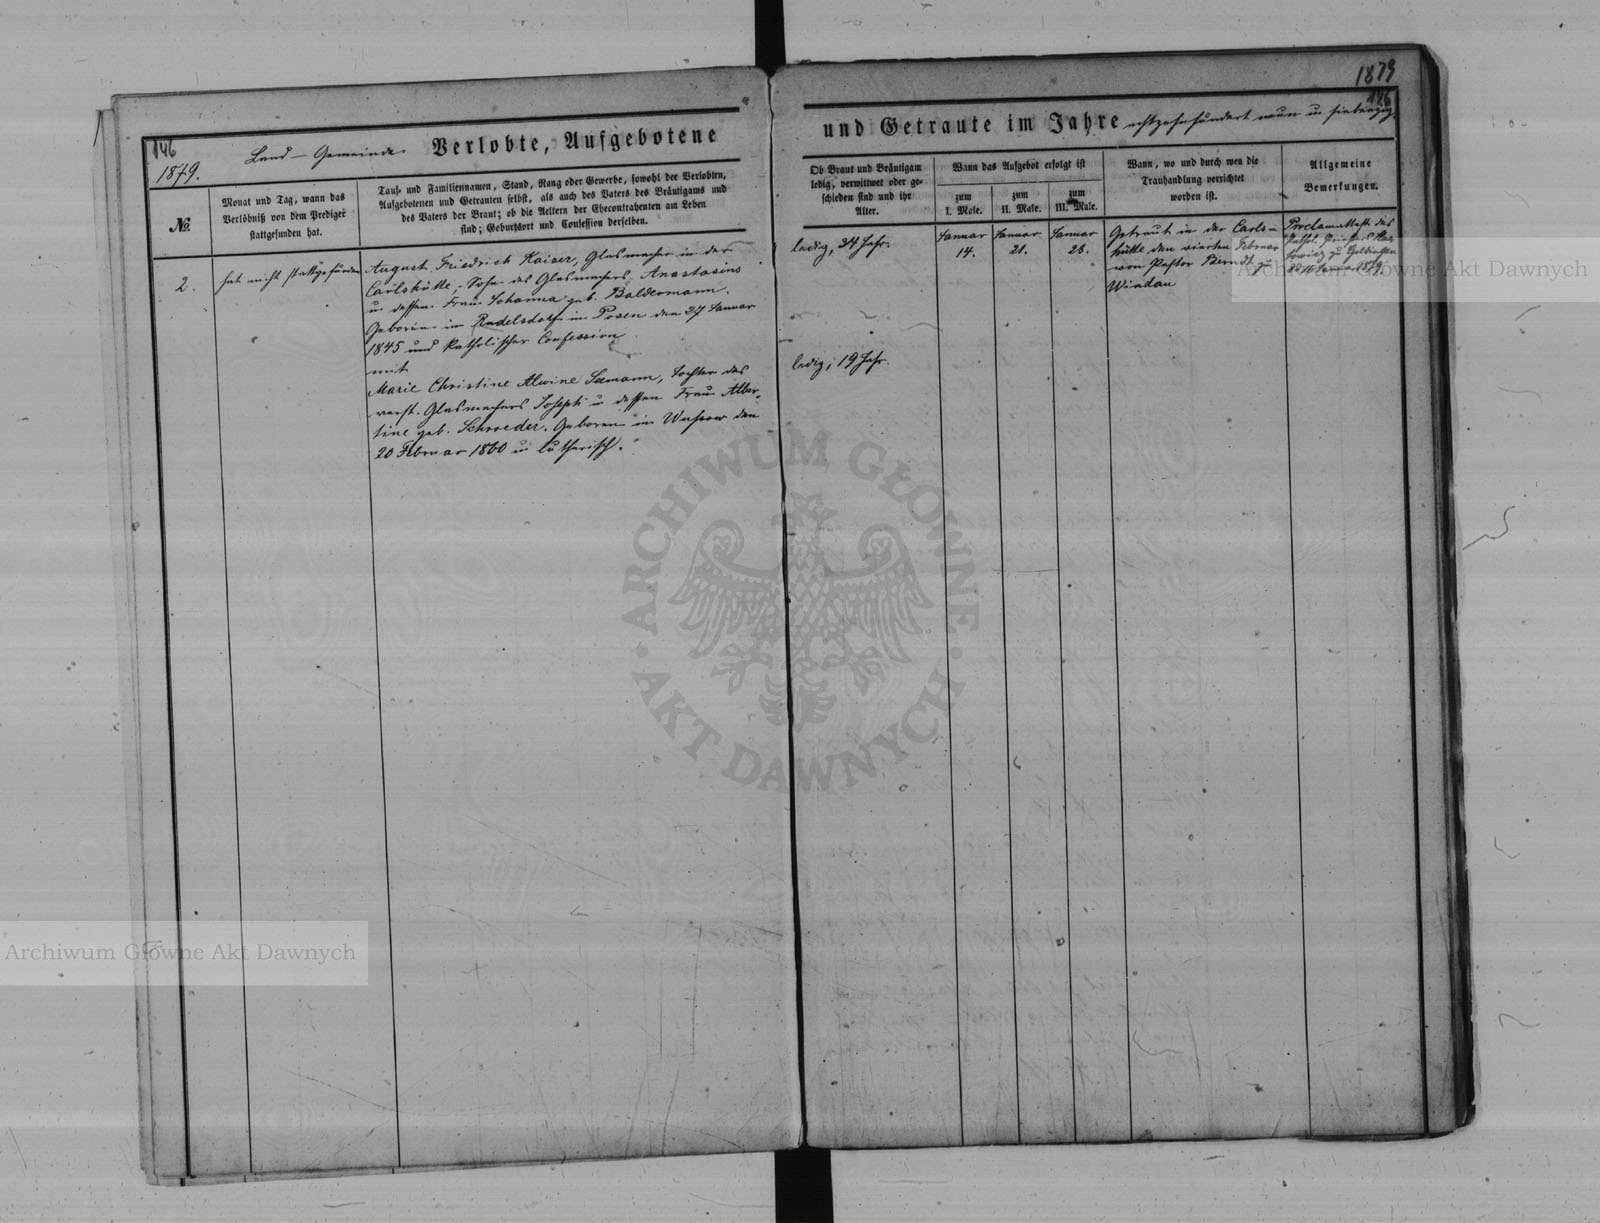 146
1879.
Land-Gemeinde Verlobte, Aufgebotene
№
Monat und Tag, wann das
Verlöbniß von dem Prediger
stattgefunden hat.
Tauf- und Familiennamen, Stand, Rang oder Gewerbe, sowohl der Verlobten,
Aufgebotenen und Getrauten selbst, als auch des Vaters des Bräutigams und
des Vaters der Braut; ob die Aeltern der Ehecontrahenten am Leben
sind; Geburtsort und Confession derselben.
2.
hat nicht stattgefunden
August Friedrich Kaiser, Glasmacher in der
Carlshütte, Sohn des Glasmachers Anastasius
u. dessen Frau Johanna geb. Baldermann.
Geboren in Rudelsdorf in Posen den 27 Januar
1845 und katholischer Confession
mit
Marie Christine Alwine Seemann, Tochter des
verst. Glasmachers Joseph u. dessen Frau Alber-
tine geb. Schroeder. Geboren in den
20 Februar 1860 u. lutherisch.
1879
146
und Getraute im Jahre achtzehnhundert neun u. siebenzig.
Ob Braut und Bräutigam
ledig, verwittwet oder ge-
schieden sind und ihr
Alter.
Wann das Aufgebot erfolgt ist
zum
I. Male.
zum
II. Male.
zum
III. Male.
Wann, wo und durch wen die
Trauhandlung verrichtet
worden ist.
Allgemeine
Bemerkungen.
ledig, 34 Jahr.
Januar
14.
Januar
21.
Januar
28.
Getraut in der Carls-
hütte den vierten Februar
von Pastor Berndt zu
Windau
Proclamattest des
kathol. Priesters
zu Goldingen
1879.
ledig, 19 Jahr.
ARCHIWUM GŁÓWNE AKT DAWNYCH
Archiwum Główne Akt Dawnych
Archiwum Główne Akt Dawnych